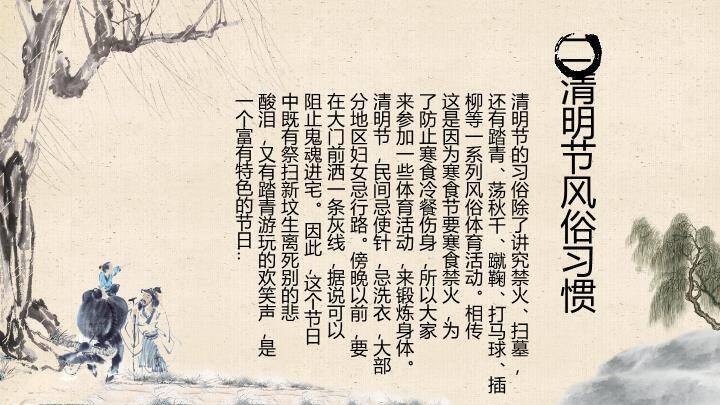 二清明节风俗习惯
清明节的习俗除了讲究禁火、扫墓，
还有踏青、荡秋千、蹴鞠、打马球、插
柳等一系列风俗体育活动。相传
这是因为寒食节要寒食禁火，为
了防止寒食冷餐伤身，所以大家
来参加一些体育活动，来锻炼身体。
清明节，民间忌使针，忌洗衣，大部
分地区妇女忌行路。傍晚以前，要
在大门前洒一条灰线，据说可以
阻止鬼魂进宅。因此，这个节日
中既有祭扫新坟生离死别的悲
酸泪，又有踏青游玩的欢笑声，是
一个富有特色的节日...